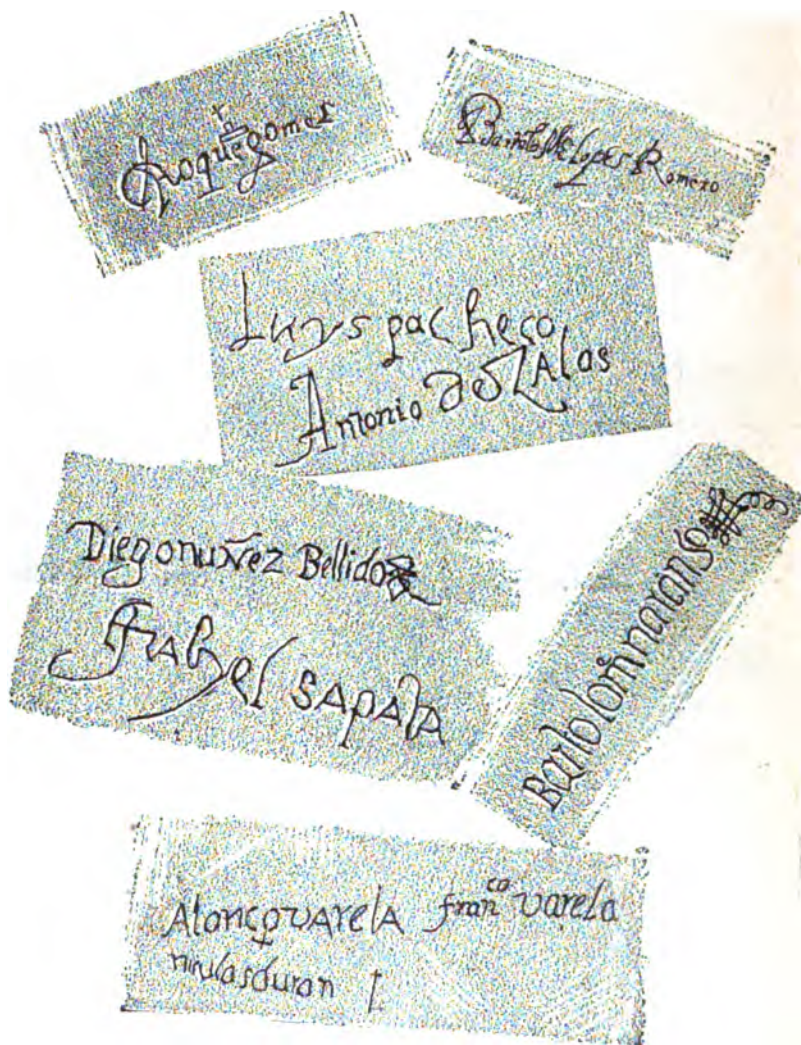 Roque gomes
Bartolome Lopes Romero
Luys pacheco
Antonio de Zalas
Diego nuñez Bellido
sapata
Bartolomé narango
Alonço varela franco varela
niculas duran